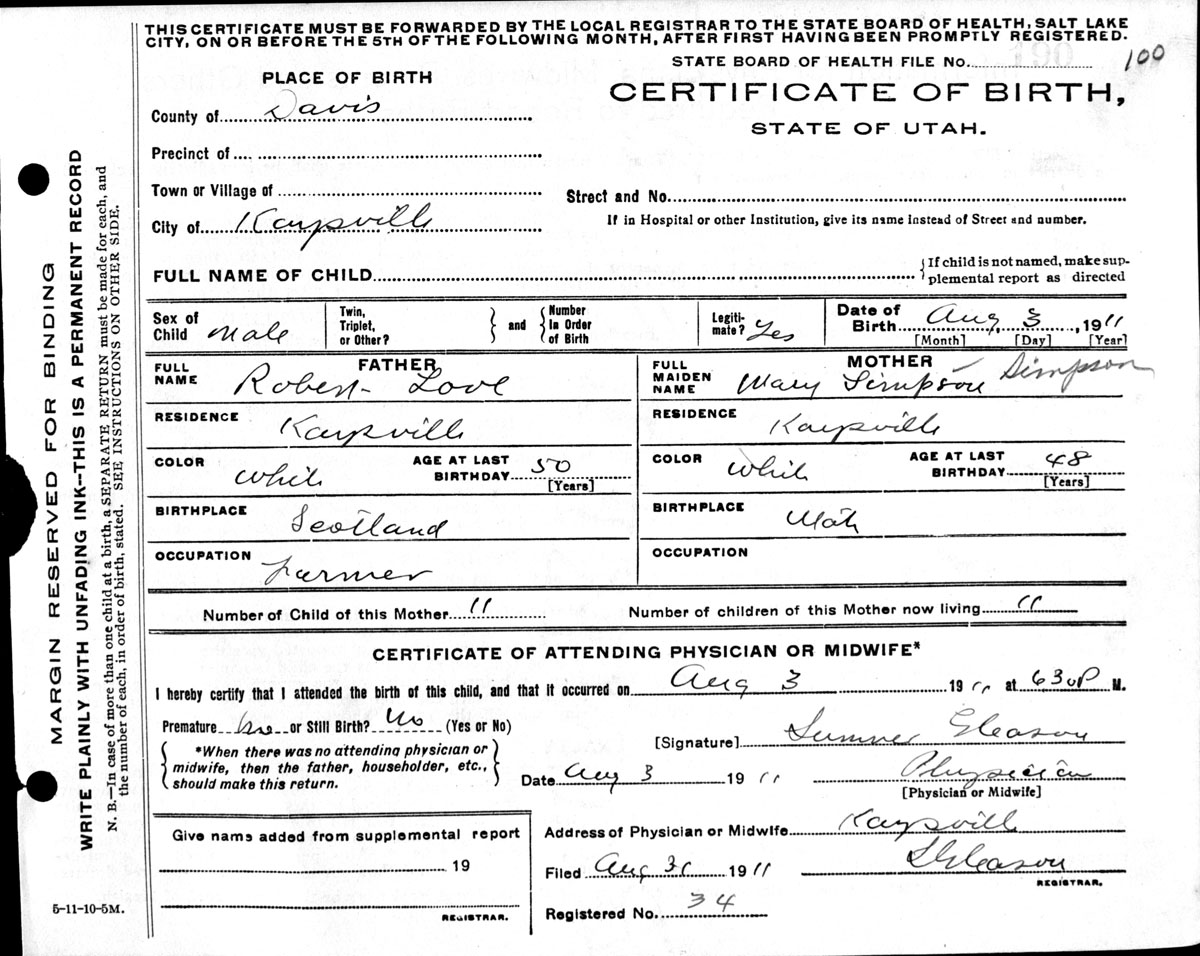 THIS CERTIFICATE MUST BE FORWARDED BY THE LOCAL REGISTRAR TO THE STATE BOARD OF HEALTH, SALT LAKE
CITY, ON OR BEFORE THE 5TH OF THE FOLLOWING MONTH, AFTER FIRST HAVING BEEN PROMPTLY REGISTERED.
STATE BOARD OF HEALTH FILE No. 100
PLACE OF BIRTH
CERTIFICATE OF BIRTH,
STATE OF UTAH.
County of Davis
Precinct of
Town or Village of
Street and No.
City of Kaysville
If in Hospital or other Institution, give its name instead of Street and number.
FULL NAME OF CHILD
If child is not named, make sup-
plemental report as directed
Sex of Child Male
Twin, Triplet, or Other?
and
Number In Order of Birth
Legiti-mate? Yes
Date of Birth Aug 3, 1911
[Month] [Day] [Year]
FATHER
FULL NAME Robert Love
RESIDENCE Kaysville
COLOR White
AGE AT LAST BIRTHDAY 50
[Years]
BIRTHPLACE Scotland
OCCUPATION Farmer
MOTHER
FULL MAIDEN NAME Mary Simpson Simpson
RESIDENCE Kaysville
COLOR White
AGE AT LAST BIRTHDAY 48
[Years]
BIRTHPLACE Utah
OCCUPATION
Number of Child of this Mother 11 Number of children of this Mother now living 11
CERTIFICATE OF ATTENDING PHYSICIAN OR MIDWIFE*
I hereby certify that I attended the birth of this child, and that it occurred on Aug 3 1911 at 630P M.
Premature No or Still Birth? No (Yes or No)
*When there was no attending physician or
midwife, then the father, householder, etc.,
should make this return.
[Signature] Sumner Gleason
Date Aug 3 1911 Physician
[Physician or Midwife]
Give name added from supplemental report
19
REGISTRAR.
Address of Physician or Midwife Kaysville
Filed Aug 31 1911 S Gleason
REGISTRAR.
Registered No. 34
MARGIN RESERVED FOR BINDING
WRITE PLAINLY WITH UNFADING INK--THIS IS A PERMANENT RECORD
N. B.—In case of more than one child at a birth, a SEPARATE RETURN must be made for each, and
the number of each, in order of birth, stated. SEE INSTRUCTIONS ON OTHER SIDE.
5-11-10-5M.